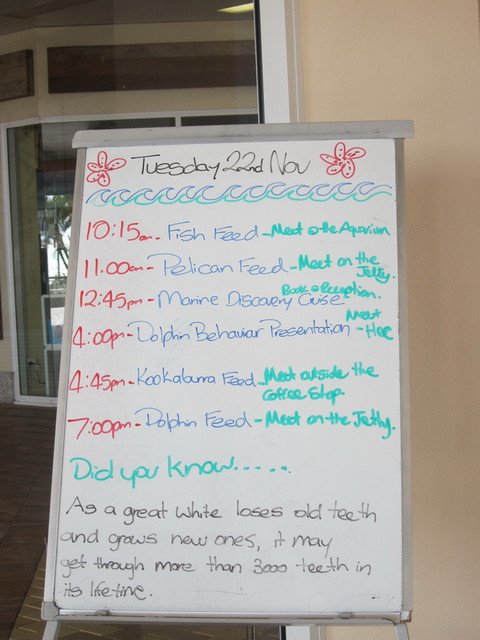 Tuesday 22nd Nov
10:15am - Fish Feed - Meet @ the Aquarium
11.00am - Pelican Feed - Meet on the Jetty.
12:45pm - Marine Discovery Cruise Book @ Reception.
4:00pm - Dolphin Behaviour Presentation - Meet Here
4:45pm - Kookaburra Feed - Meet outside the
Coffee Shop.
7:00pm - Dolphin Feed - Meet on the Jetty.
Did you know.....
As a great white loses old teeth
and grows new ones, it may
get through more than 3000 teeth in
its lifetime.